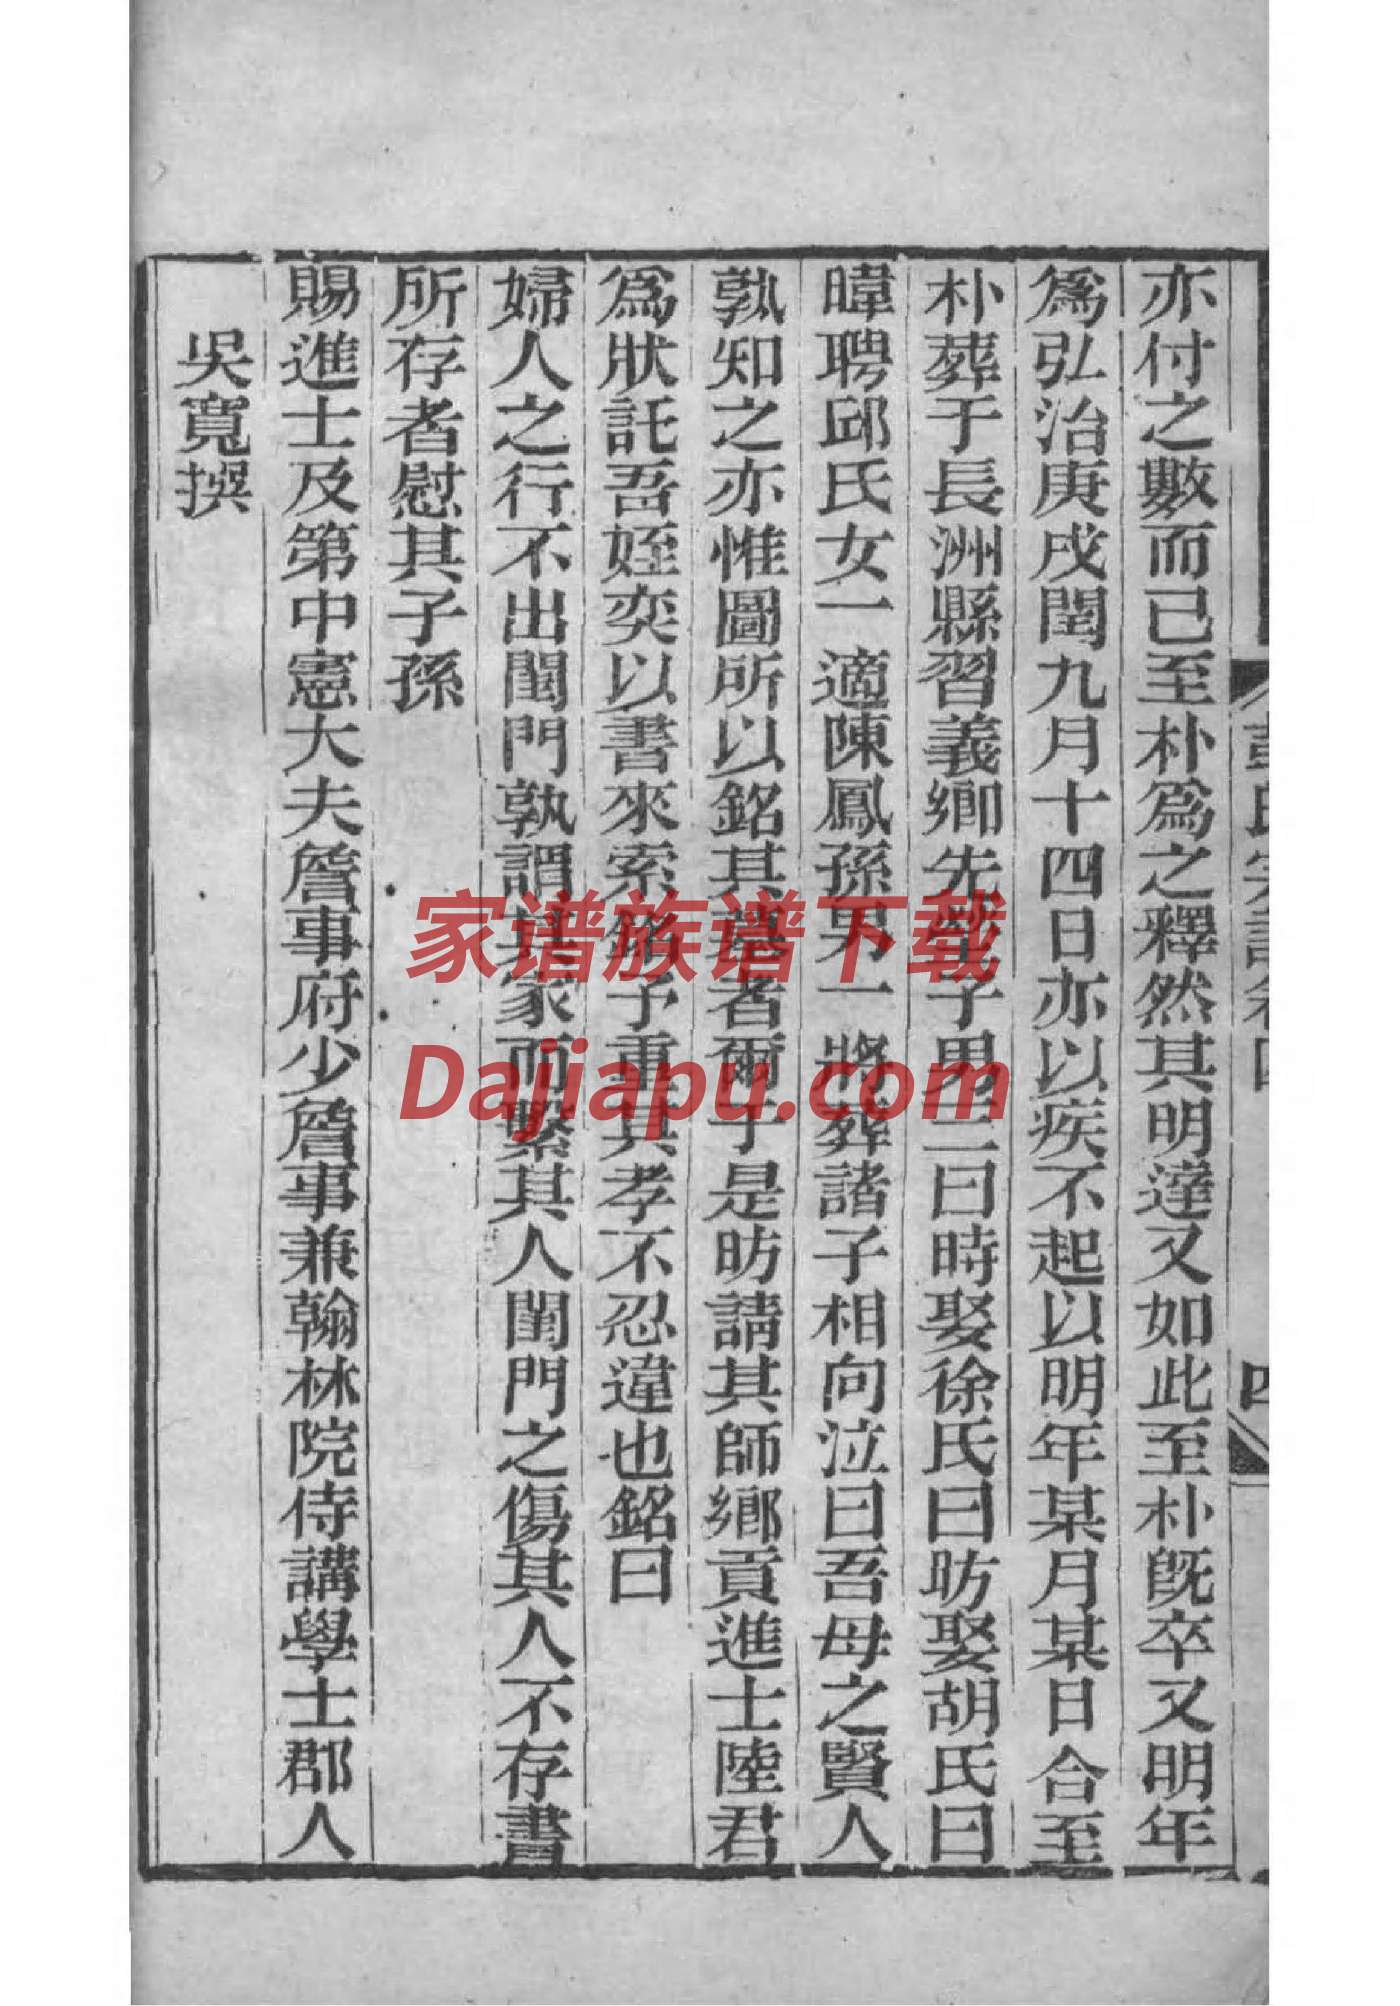 亦付之數而已至朴爲之釋然其明達又如此至朴旣卒又明年
爲弘治庚戌閏九月十四日亦以疾不起以明年某月某日合至
朴葬于長洲縣習義鄉先塋子男三曰時娶徐氏曰昉娶胡氏曰
暐聘邱氏女一適陳鳳孫男一將葬諸子相向泣曰吾母之賢人
孰知之亦惟圖所以銘其墓者爾于是昉請其師鄉貢進士陸君
爲狀託吾姪奕以書來索銘予重其孝不忍違也銘曰
婦人之行不出閨門孰謂其家而繫其人閨門之傷其人不存書
所存者慰其子孫
賜進士及第中憲大夫詹事府少詹事兼翰林院侍講學士郡人
吳寬撰
家谱族谱下载
Dajiapu.com